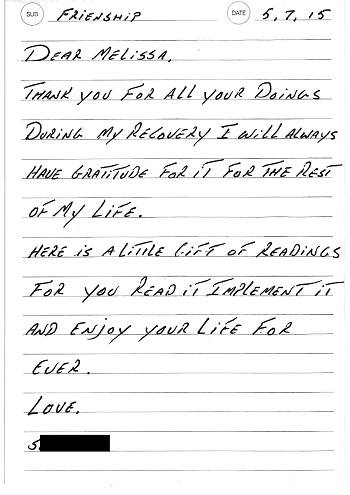 SUB FRIENSHIP DATE 5, 7, 15
DEAR MELISSA,
THANK YOU FOR ALL YOUR DOINGS
DURING MY RECOVERY I WILL ALWAYS
HAVE GRATITUDE FOR IT FOR THE REST
OF MY LIFE.
HERE IS A LITTLE GIFT OF READINGS
FOR YOU READ IT IMPLEMENT IT
AND ENJOY YOUR LIFE FOR
EVER.
LOVE.
S